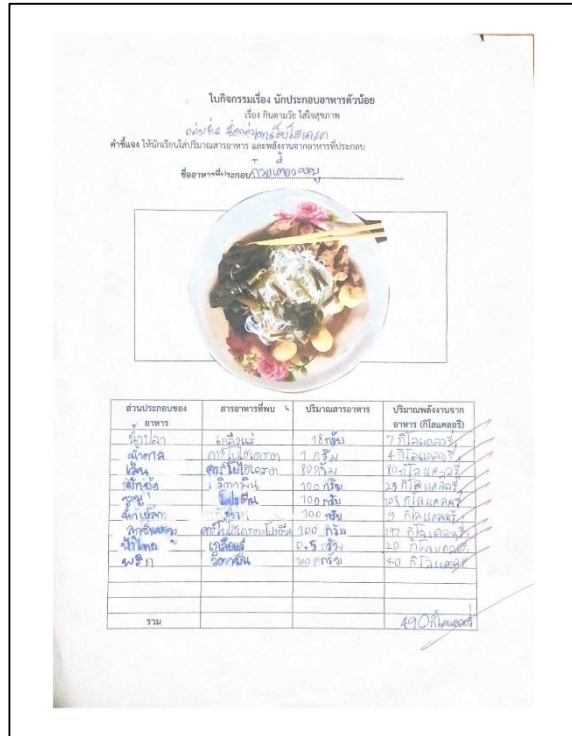 ใบกิจกรรมเรื่อง นักประกอบอาหารตัวน้อย
เรื่อง กินตามวัย ใส่ใจสุขภาพ
คำชี้แจง ให้นักเรียนใส่ปริมาณสารอาหาร และพลังงานจากอาหารที่ประกอบ
ชื่ออาหารที่ประกอบ ก๋วยเตี๋ยวหมู
ส่วนประกอบของอาหาร สารอาหารที่พบ ปริมาณสารอาหาร ปริมาณพลังงานจากอาหาร (กิโลแคลอรี)
น้ำปลา เกลือแร่ 18 กรัม 7 กิโลแคลอรี่
น้ำตาล คาร์โบไฮเดรต 1 กรัม 4 กิโลแคลอรี่
เส้น คาร์โบไฮเดรต 80 กรัม 80 กิโลแคลอรี่
ผักบุ้ง วิตามิน 100 กรัม 25 กิโลแคลอรี่
หมู โปรตีน 100 กรัม กิโลแคลอรี่
100 กรัม 9 กิโลแคลอรี่
ลูกชิ้นหมู 100 กรัม กิโลแคลอรี่
เกลือแร่ 0.5 กรัม 20 กิโลแคลอรี่
พริก วิตามิน 100 กรัม 40 กิโลแคลอรี่
รวม 490 กิโลแคลอรี่